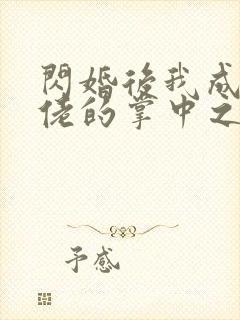 閃婚後我成
佬的掌中之
予感